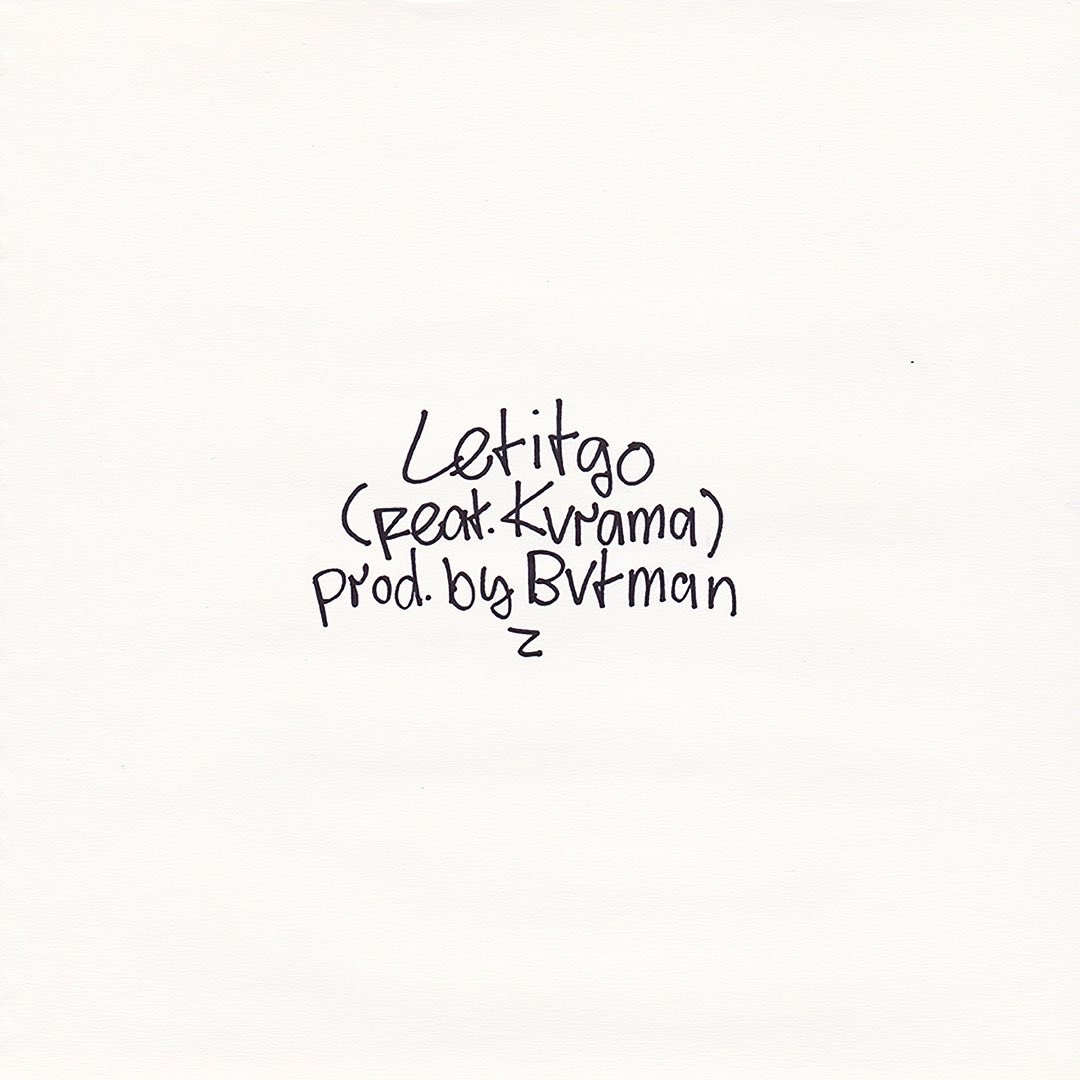 Letitgo
(feat. Kvrama)
prod. by Bvtman
z